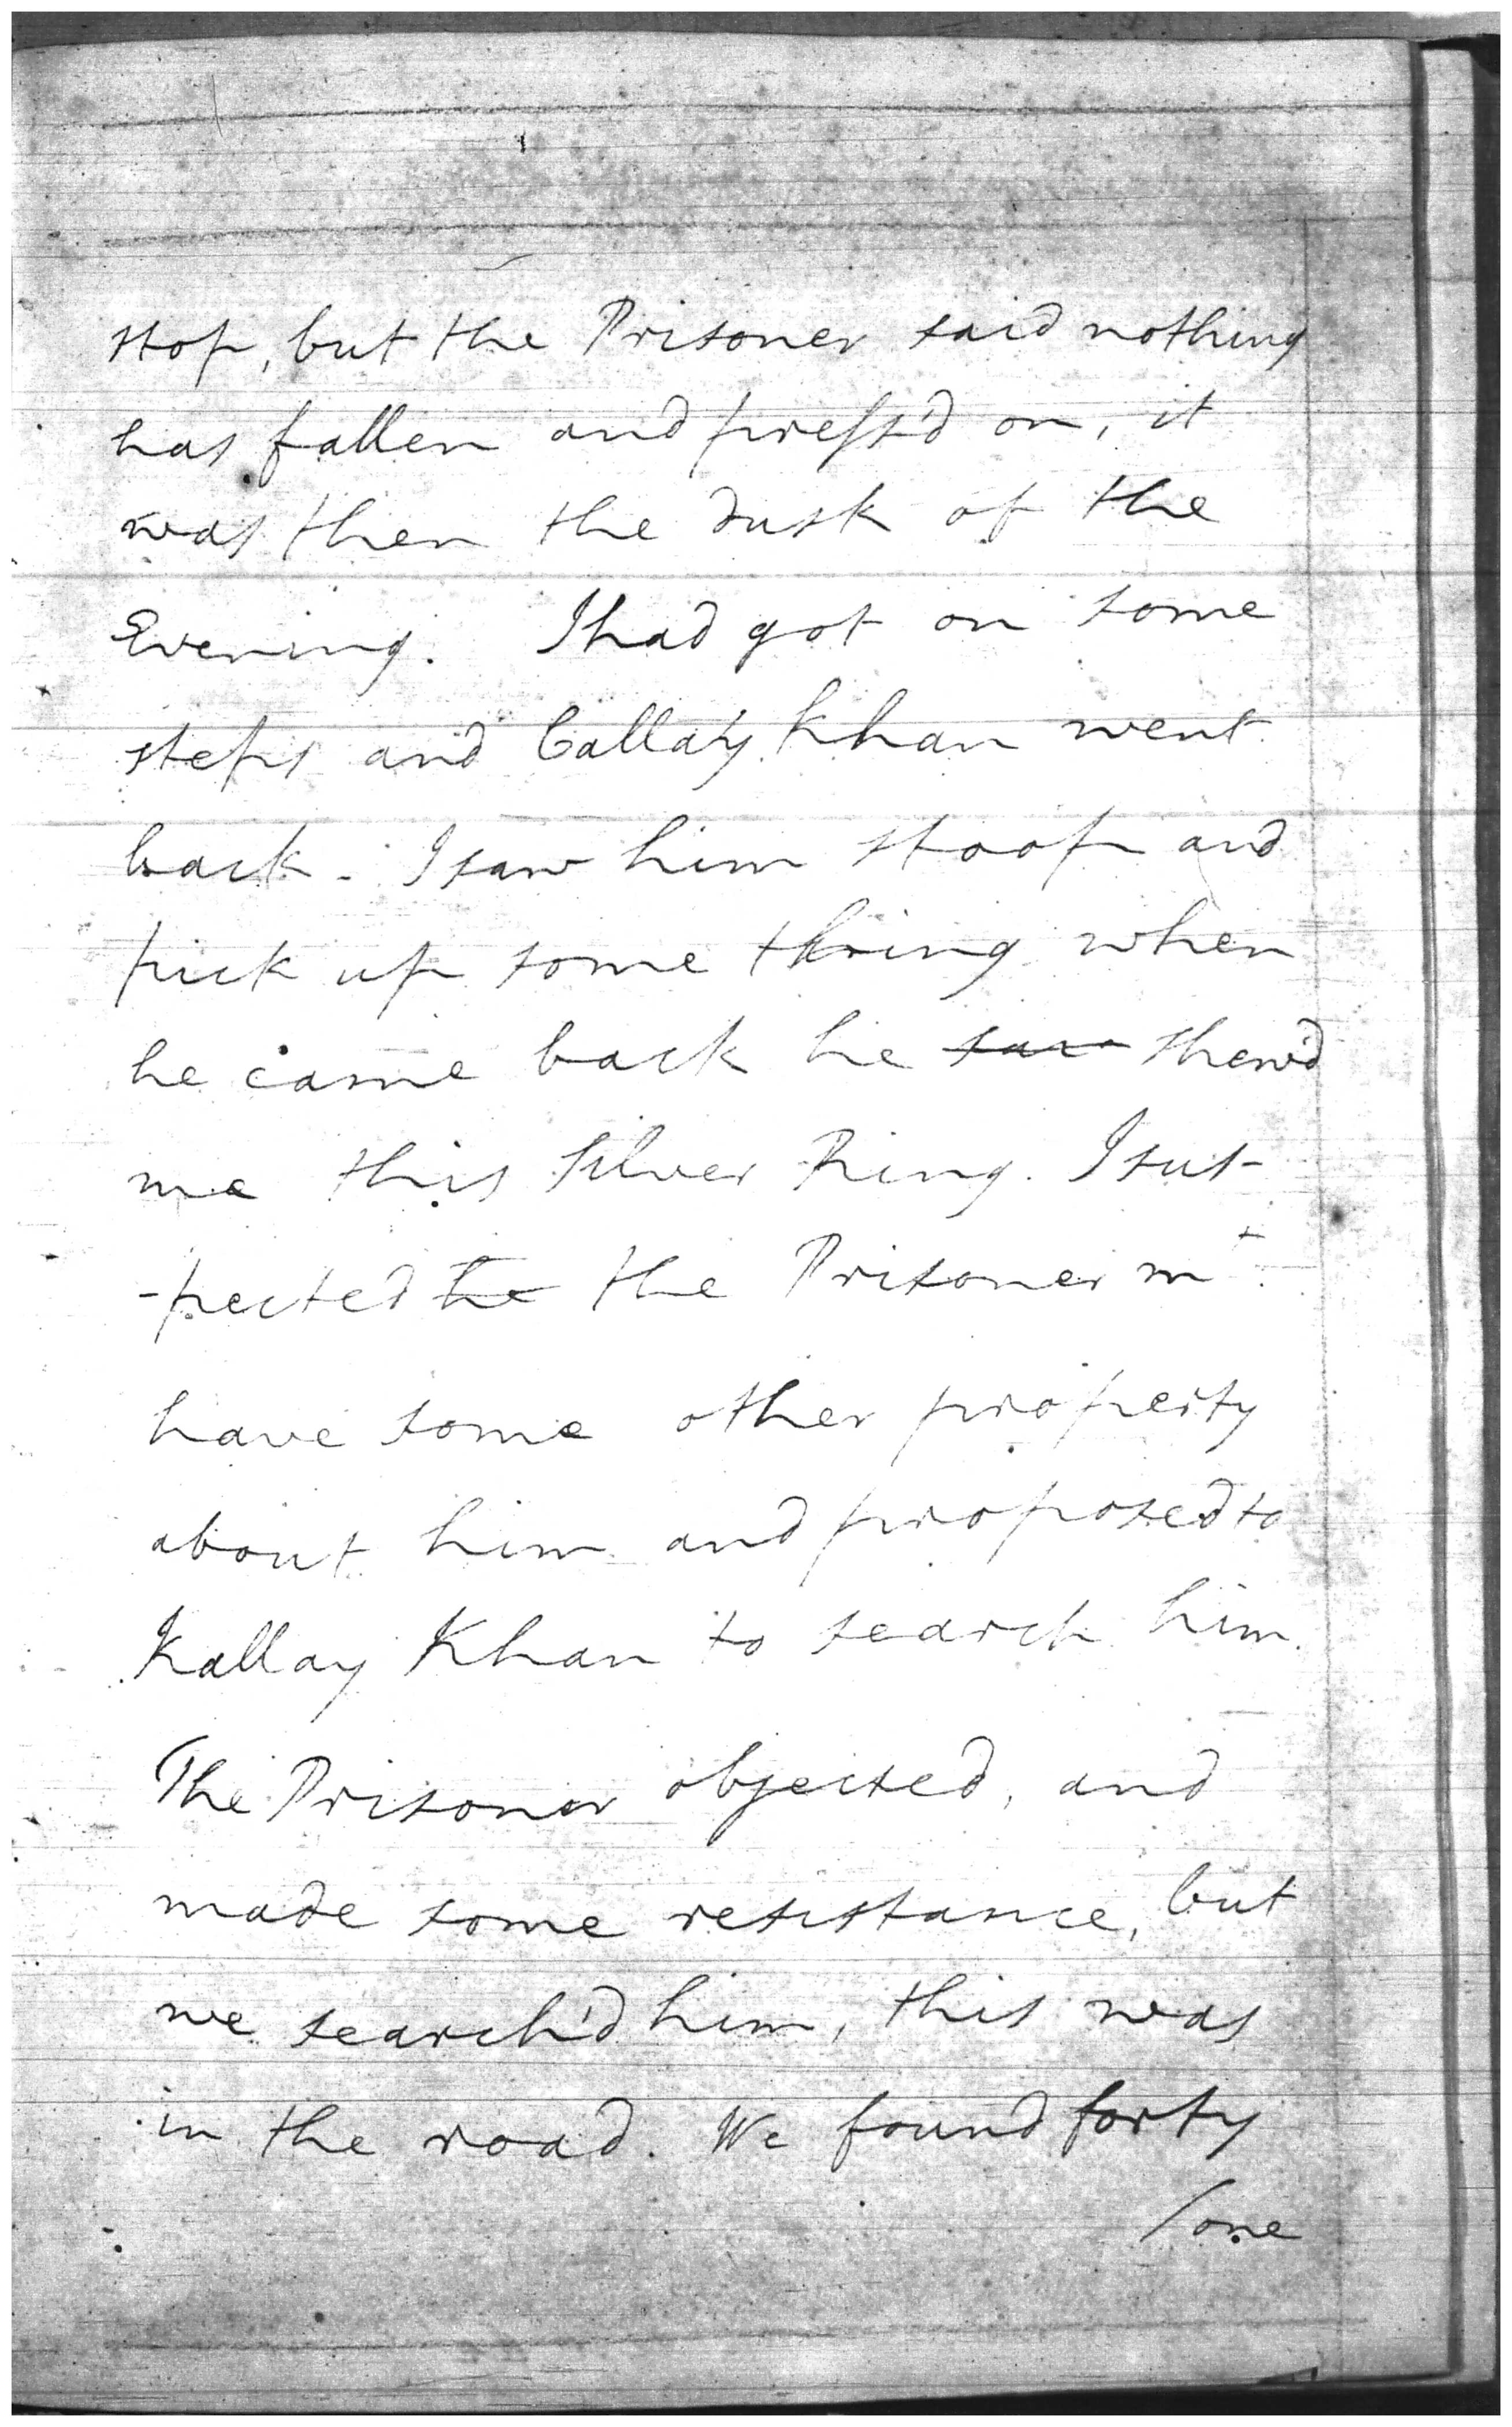 stop, but the Prisoner said nothing
has fallen and press'd on, it
was then the dusk of the
Evening. I had got on some
steps and Callay Khan went
back. I saw him stoop and
pick up some thing when
he came back he saw shew'd
me this Silver Ring. I sus-
-pected he the Prisoner mt.
have some other property
about him and proposed to
Kallay Khan to search him.
The Prisoner objected, and
made some resistance, but
we search'd him, this was
in the road. We found forty
/one